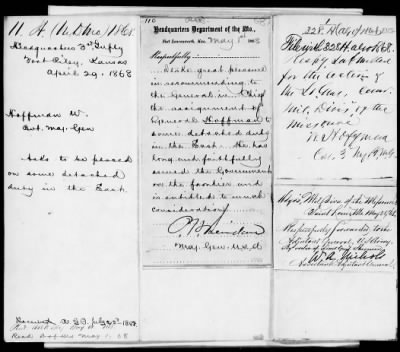 H. A (M. D. Mo) 1868.
Headquarters 3rd Infty
Fort Riley, Kansas
April 29, 1868
Hoffman W.
Bvt. Maj. Gen
Asks to be placed
on some detached
duty in the East.
Received A.G.O. July 25th 1868
110
Headquarters Department of the Mo.
Fort Leavenworth, Kan. May 1st 1868
Respectfully:
I take great pleasure
in recommending to the
General in Chief
the assignment of
General Hoffman to
some detached duty
in the East. He has
long and faithfully
served the Government
on the frontier and
is entitled to much
consideration
P. H. Sheridan
Maj. Gen. U.S.A
File with 228 H. A.G.O. 1868.
for the action of
the Lt. Gen. Com.
Mil. Divn of the
Missouri
W Hoffman
Col. 3 Infty
Hdqrs. Mil. Divn of the Missouri
Saint Louis Mo May 1868
Respectfully forwarded to the
Adjutant General, U.S. Army,
W. A. Nichols
Assistant Adjutant General